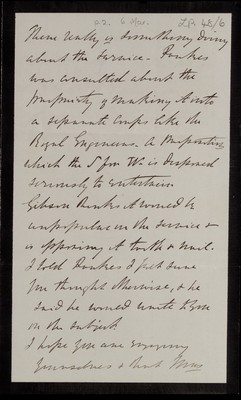 22. 6 Mar. LB 48/6
There really is something doing
about the Service - Parkes
was consulted about the
propriety of making it into
a separate Corps like the
Royal Engineers. A proposition
which the S for W is disposed
seriously to entertain
Gibson thinks it would be
unpopular in the service &
is opposing it tooth & nail.
I told Parkes I felt sure
you thought otherwise, & he
said he would write to you
on the subject
I hope you are enjoying
yourselves & that